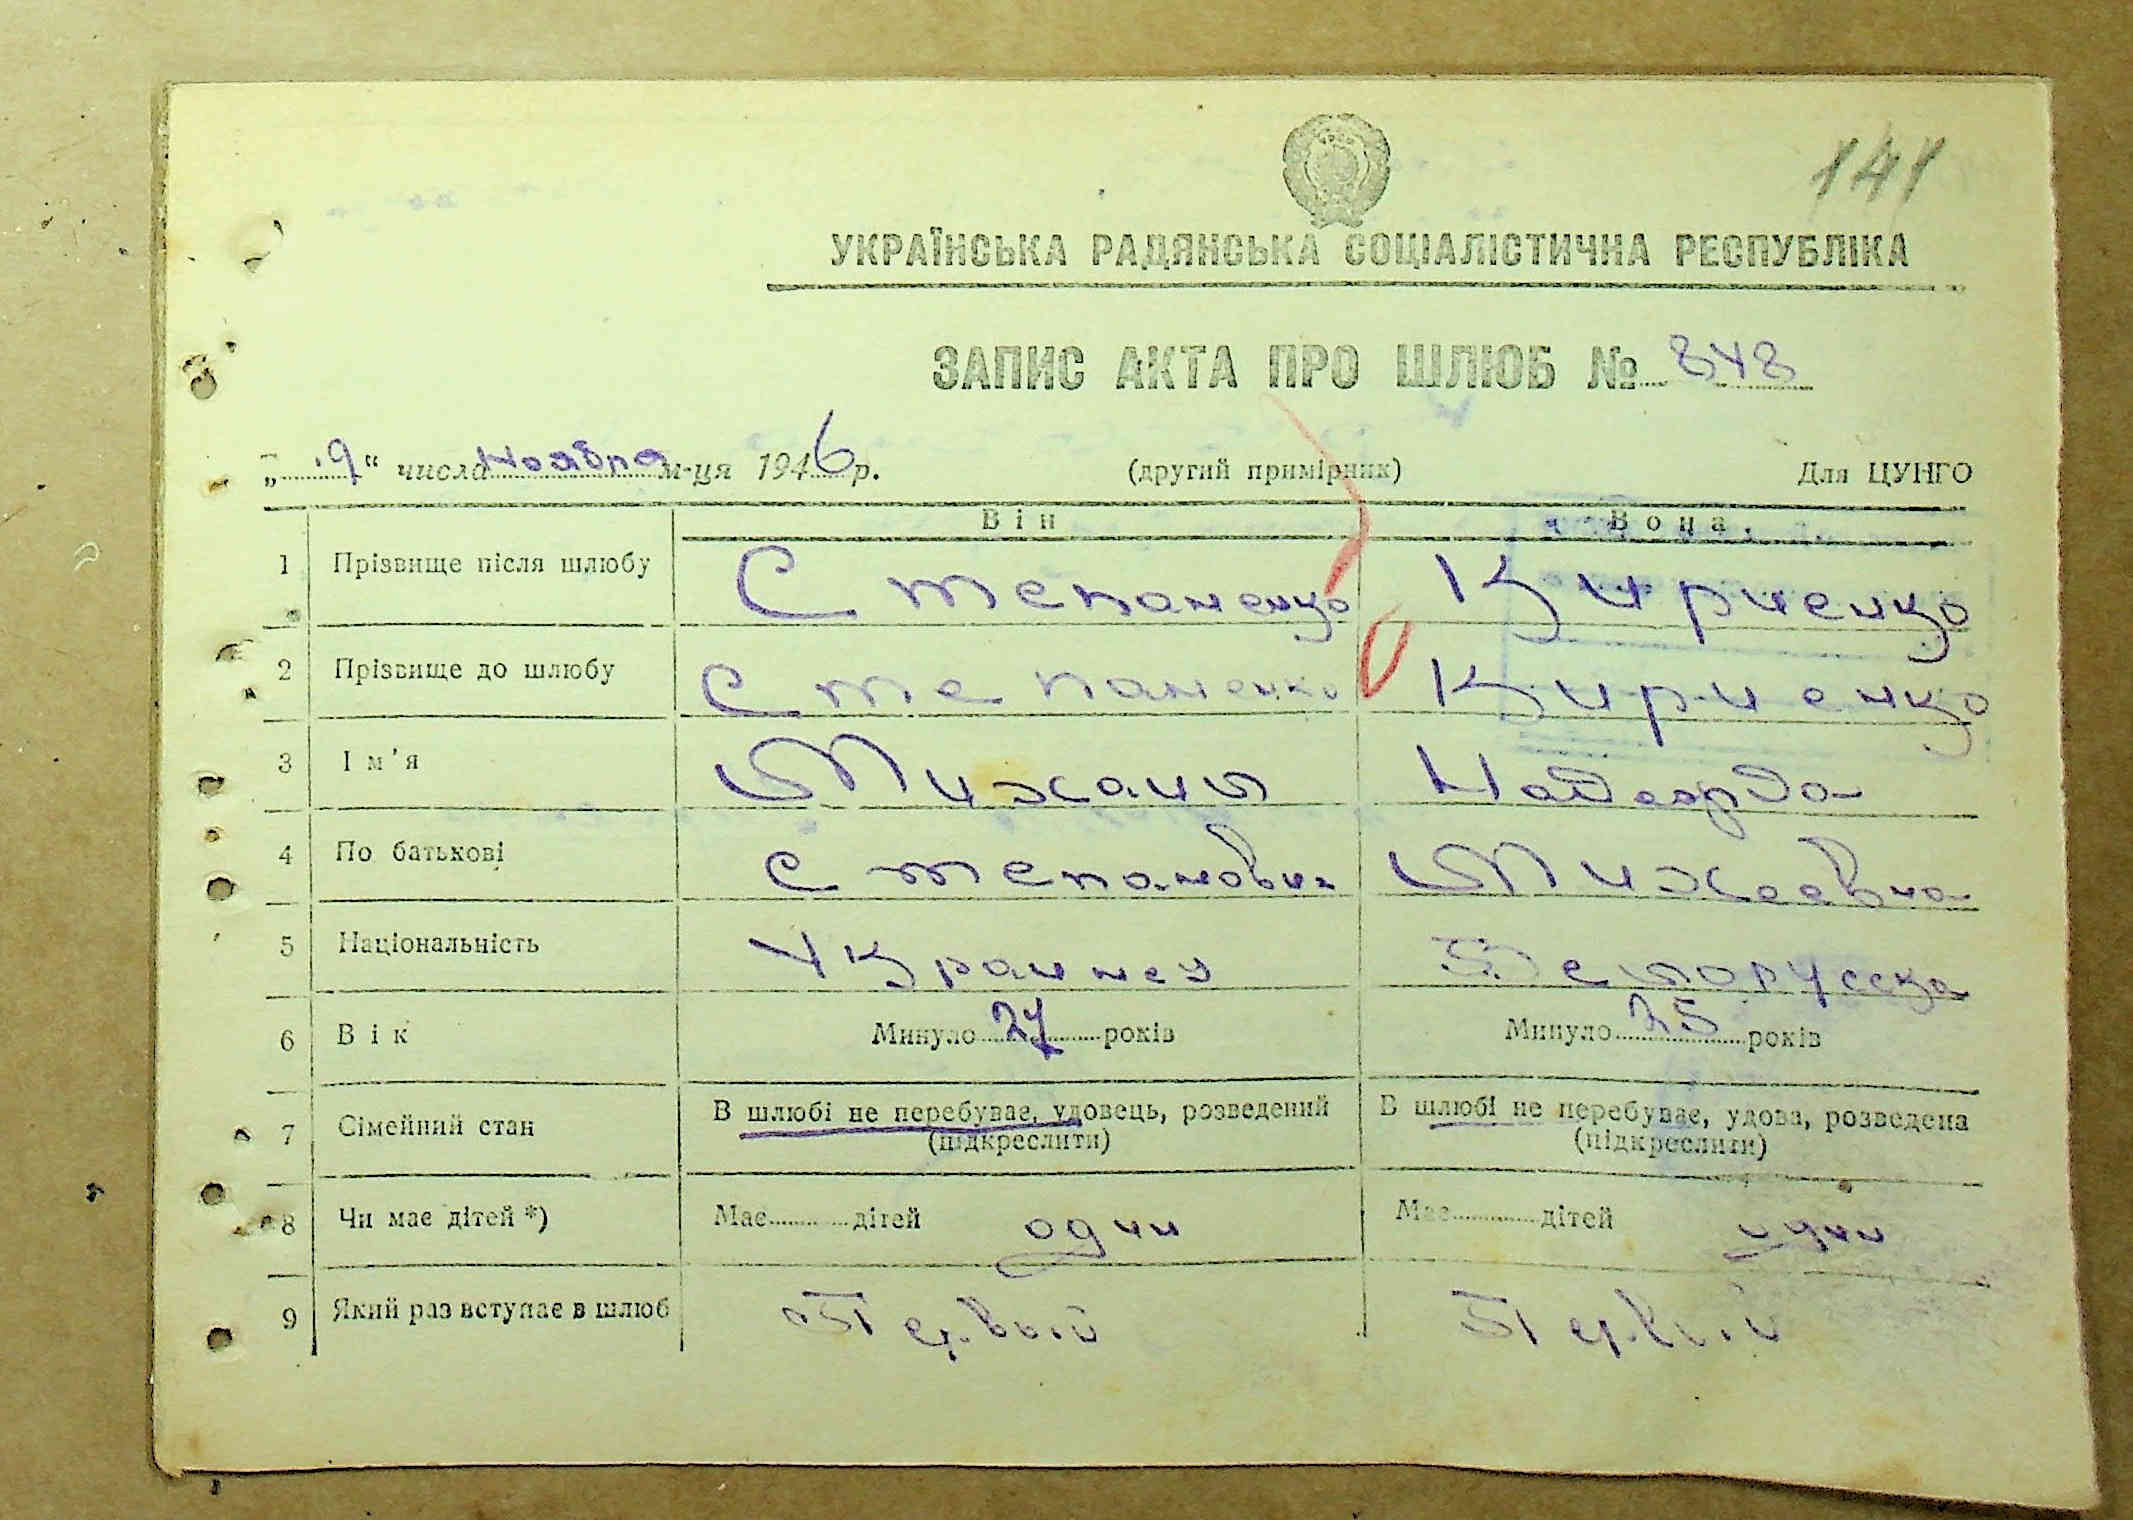 141
УКРАЇНСЬКА РАДЯНСЬКА СОЦІАЛІСТИЧНА РЕСПУБЛІКА
ЗАПИС АКТА ПРО ШЛЮБ № 848
„ 9 “ числа Ноября м-ця 1946 р. (другий примірник) Для ЦУНГО
Він Вона
1 Прізвище після шлюбу Степаненко Кириенко
2 Прізвище до шлюбу Степаненко Кириенко
3 Ім'я Михаил Надежда
4 По батькові Степанович Михеевна
5 Національність Украинец Белорусска
6 Вік Минуло 27 років Минуло 25 років
7 Сімейний стан В шлюбі не перебуває, удовець, розведений (підкреслити) В шлюбі не перебуває, удова, розведена (підкреслити)
8 Чи має дітей *) Має дітей один Має дітей один
9 Який раз вступає в шлюб Первый Первый